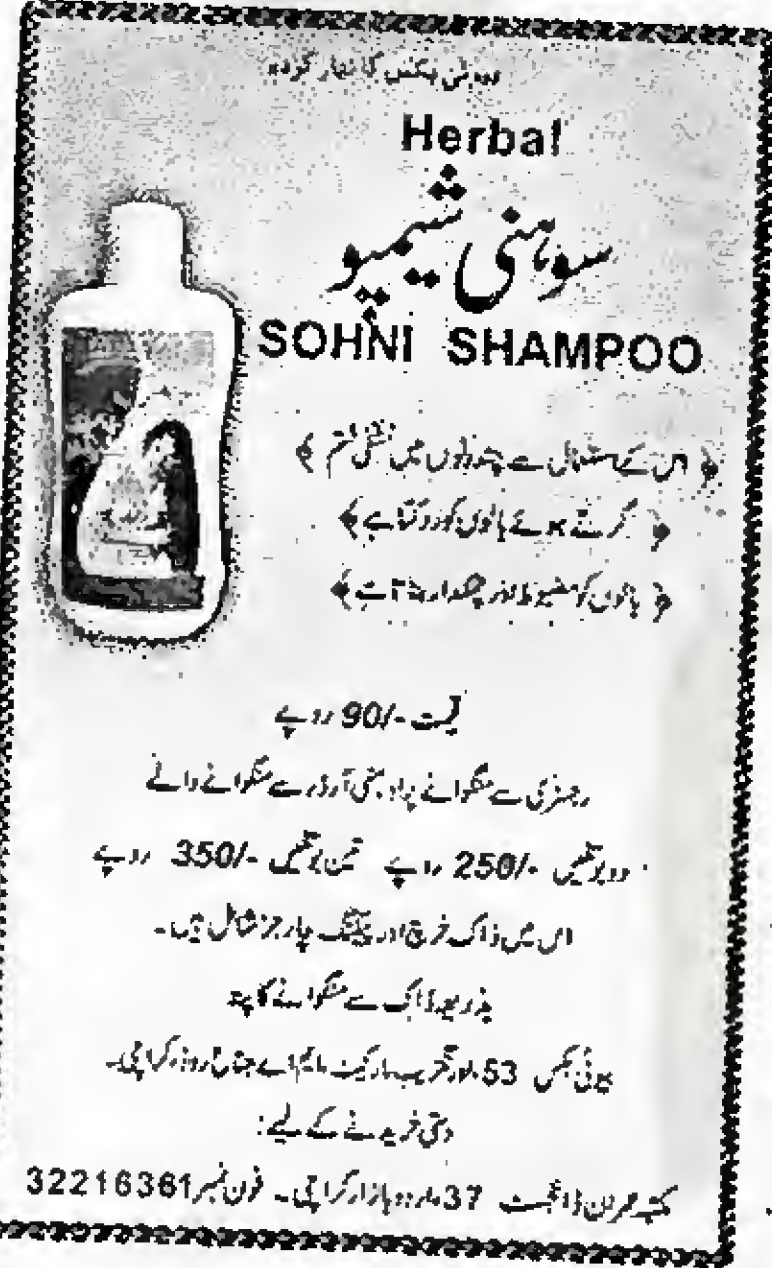 بیوٹی بکس کا تیار کردہ
Herbal
سوہنی شیمپو
SOHNI SHAMPOO
﴿ اس کے استعمال سے چند دنوں میں خشکی ختم ﴾
﴿ گرتے ہوئے بالوں کو روکتا ہے ﴾
﴿ بالوں کو مضبوط اور چمکدار بناتا ہے ﴾
قیمت -/90 روپے
رجسٹری سے منگوانے پر اور منی آرڈر سے منگوانے والے
دو بوتلیں -/250 روپے تین بوتلیں -/350 روپے
اس میں ڈاک خرچ اور پیکنگ چارجز شامل ہیں۔
بذریعہ ڈاک سے منگوانے کا پتہ
بیوٹی بکس 53، اورنگزیب مارکیٹ، ایم اے جناح روڈ، کراچی۔
دستی خریدنے کے لیے:
مکتبہ عمران ڈائجسٹ 37، اردو بازار، کراچی۔ فون نمبر 32216361